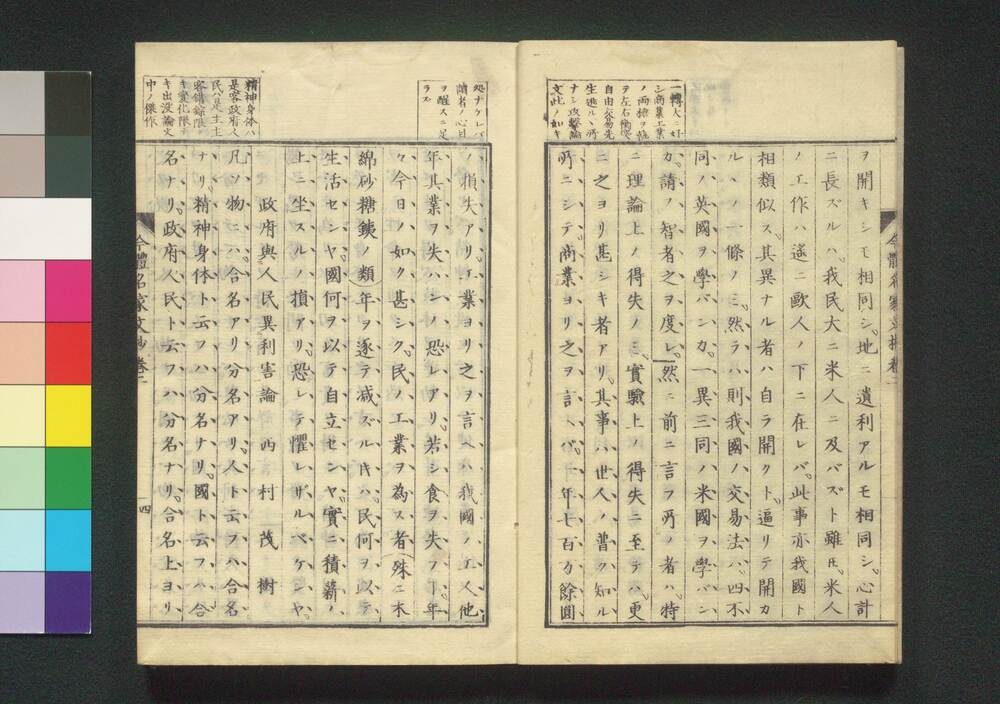 一轉大ニ好
ヲ開キシモ相同シ。地ニ遺利アルモ相同シ。心計
ニ長ズルハ。我民大ニ米人ニ及バズト雖𪜈。米人
ノ工作ハ遙ニ歐人ノ下ニ在レバ。此事亦我國ト
相類似ス。其異ナル者ハ自ラ開クト。逼リテ開カ
ルヽノ一條ノミ。然ラハ則我國ノ交易法ハ。四不
同ノ英國ヲ學バンカ。一異三同ノ米國ヲ學バン
カ。請フ智者之ヲ度レ。然ニ前ニ言フ所ノ者ハ。特
ニ理論上ノ得失ノミ。實驗上ノ得失ニ至テハ。更
ニ之ヨリ甚シキ者アリ。其事ハ世人ノ普ク知ル
所ニシテ。商業ヨリ之ヲ言ヘバ。一年七百万餘圓
処ナクレバ
讀者ノ心目
ヲ醒スニ足
ラス
ノ損失アリ。工業ヨリ之ヲ言ヘハ我國ノ工人他
年其業ヲ失ハンノ恐レアリ。若シ食ヲ失フ丁年
々今日ノ如ク甚シク。民ノ工業ヲ為ス者殊ニ木
綿砂糖鉄ノ類年ヲ逐テ减ズル𪜈ハ。民何ヲ以テ
生活センヤ。國何ヲ以テ自立センヤ。實ニ積薪ノ
上ニ坐スルノ損アリ。恐レテ懼レザルベケンヤ。
政府與人民異利害論 西村茂樹
精神身体ハ
是客政府人
民ハ是主主
中ノ傑作
凡ソ物ニハ。合名アリ。分名アリ。人ト云フハ合名
ナリ。精神身体ト云フハ分名ナリ。國ト云フハ合
名ナリ。政府人民ト云フハ分名ナリ。合名上ヨリ
今體名家文抄卷二
四